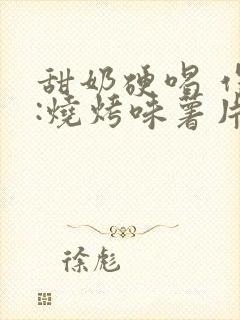 甜奶硬唱
:燒烤味薯片
徐彪